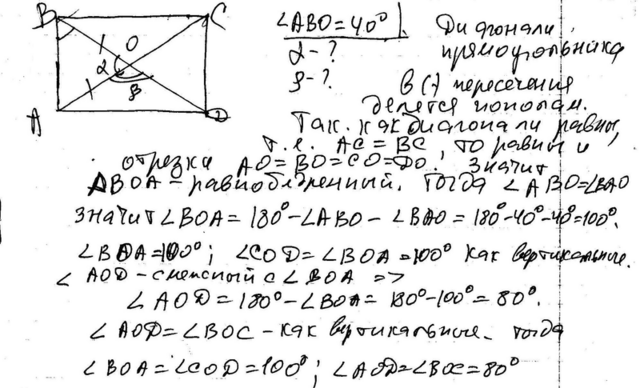 B C
O
α
β
A D
∠ABO = 40°
α - ?
β - ?
Диагонали
прямоугольника
в (·) пересечения
делятся пополам.
Так как диагонали равны,
т.е. AC = BC, то равны и
отрезки AO = BO = CO = DO. Значит
ΔBOA – равнобедренный. Тогда ∠ABO = ∠BAO
Значит ∠BOA = 180° - ∠ABO - ∠BAO = 180° - 40° - 40° = 100°.
∠BOA = 100°; ∠COD = ∠BOA = 100° как вертикальные.
∠AOD – смежный с ∠BOA =>
∠AOD = 180° - ∠BOA = 180° - 100° = 80°.
∠AOD = ∠BOC – как вертикальные. Тогда
∠BOA = ∠COD = 100°; ∠AOD = ∠BOC = 80°